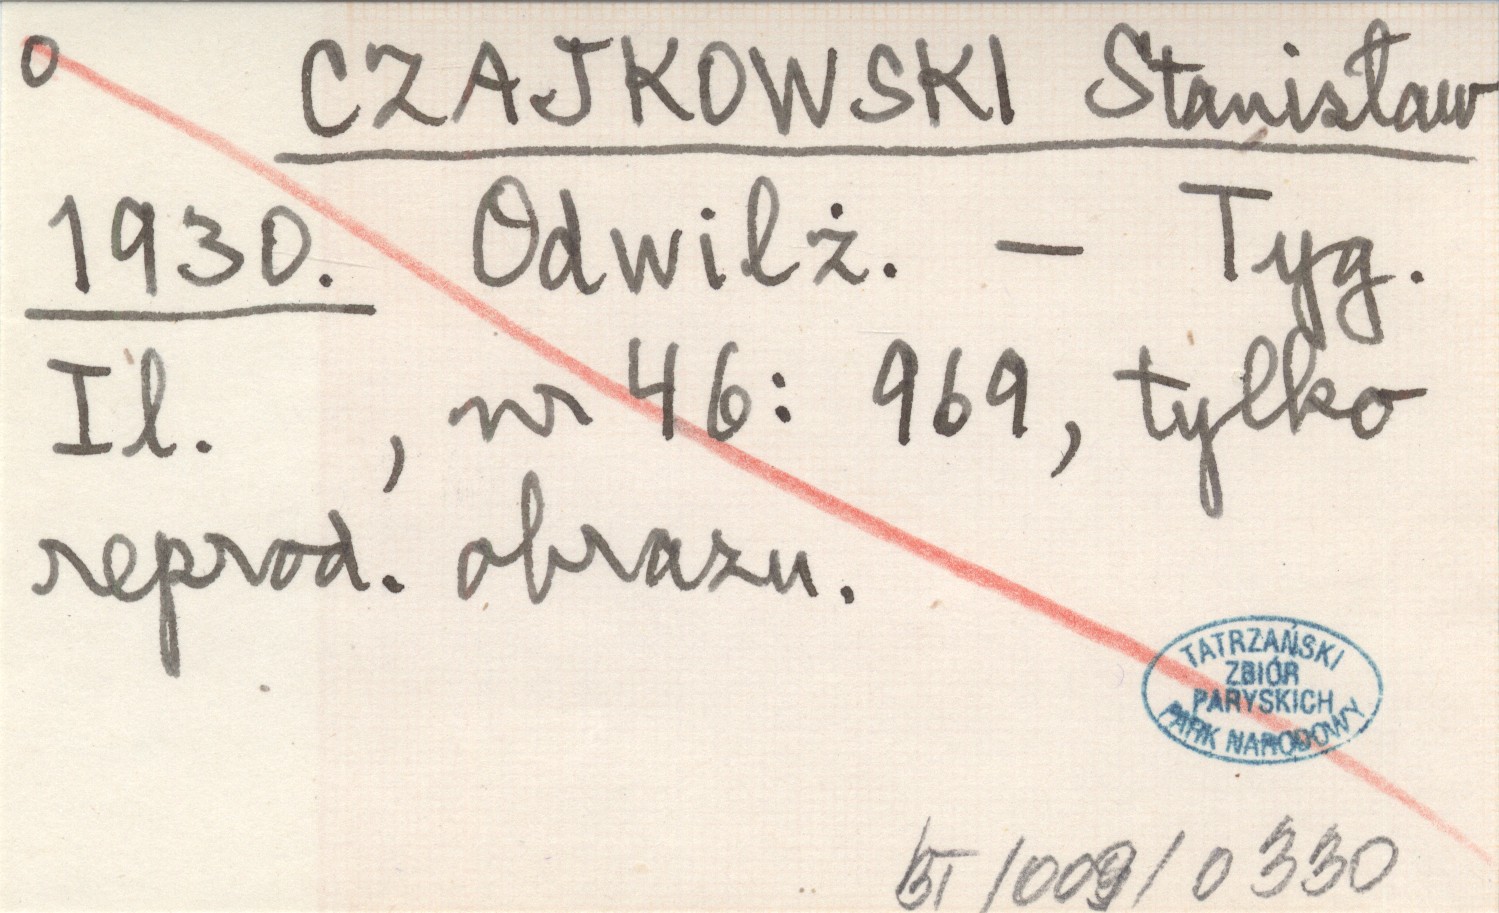 o CZAJKOWSKI Stanisław
1930. Odwilż. — Tyg.
Il. , nr 46: 969, tylko
reprod. obrazu.
TATRZAŃSKI
ZBIÓR
PARYSKICH
PARK NARODOWY
/009/0330